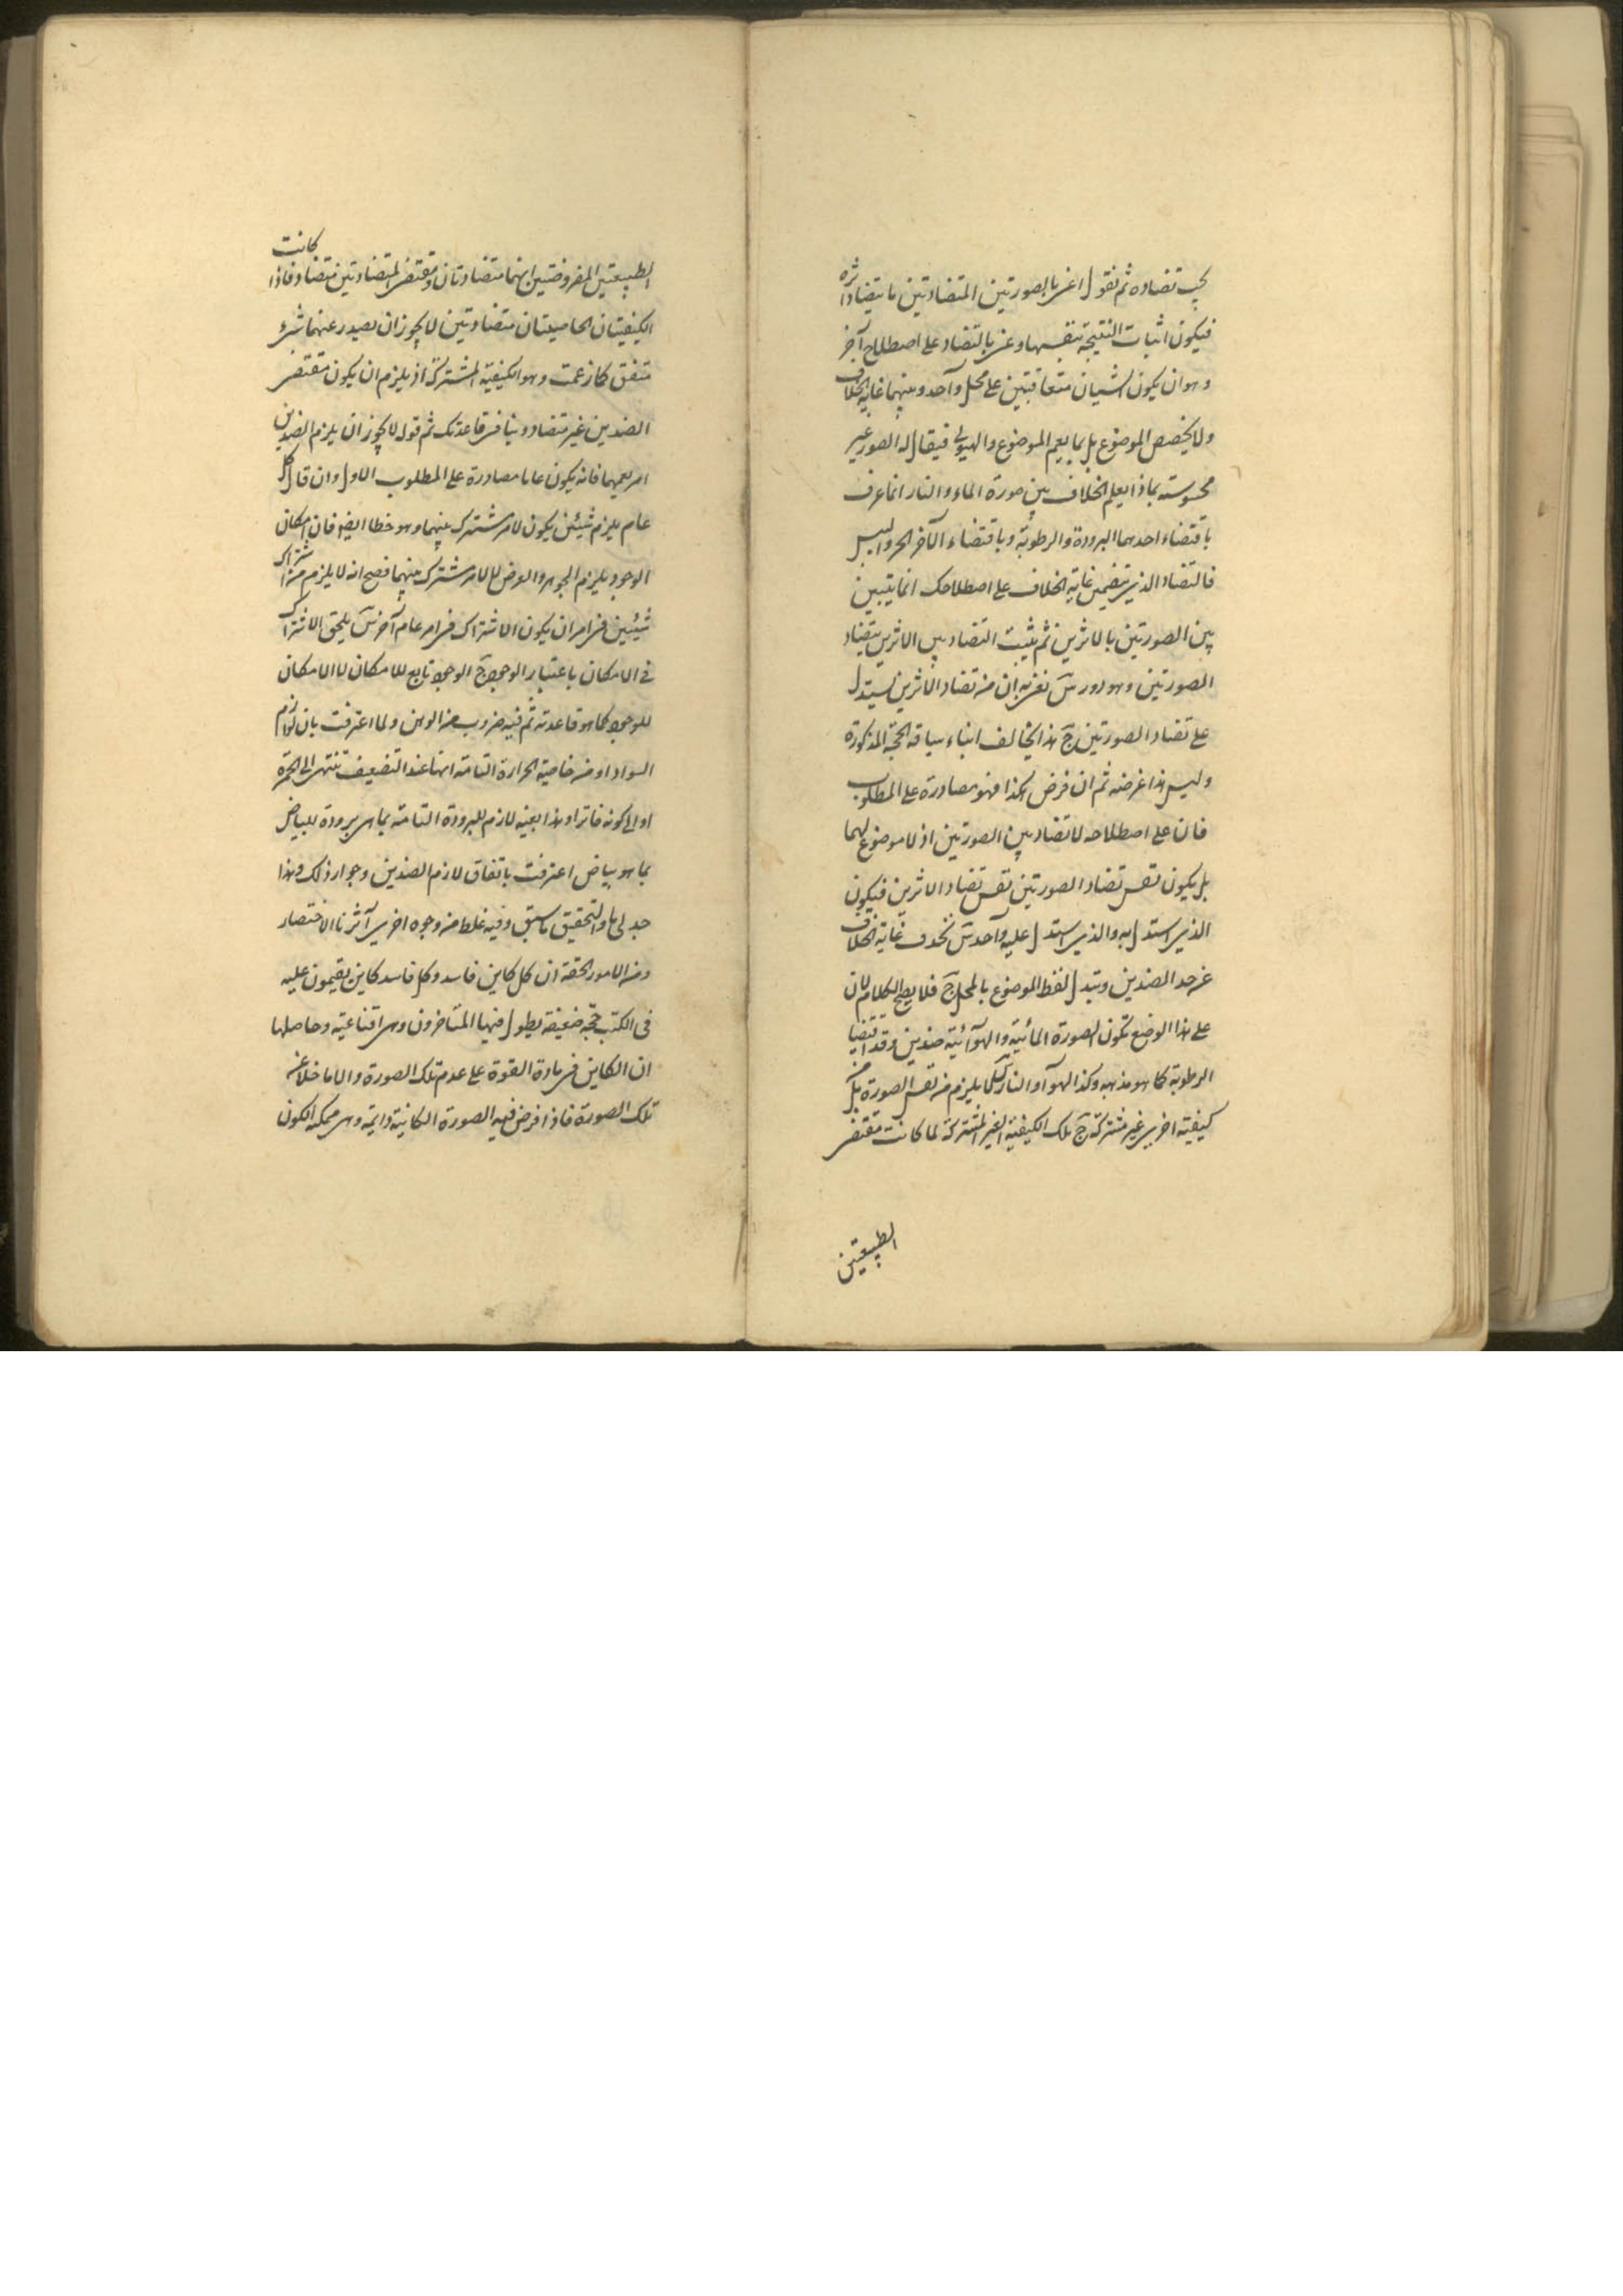 يجب تضاده ثم نقول اعنى بالصورتين المتضادتين ما يتضاد اثره
فيكون اثبات النتيجة بنفسها وعنى بالتضاد على اصطلاح آخر
وهو ان يكون الشيان متعاقبتين على محل واحد وبينهما غاية الخلاف
ولا يخصص الموضوع بل بما يعم الموضوع والهيولى فيقال له الصور غير
محسوسته بماذا يعلم الخلاف بين صورة الماء والنار انما عرف
باقتضاء احدهما البرودة والرطوبة وباقتضاء الآخر الحر واليبس
فالتضاد الذى يتضمن غاية الخلاف على اصطلاحك انما يتبين
بين الصورتين بالاثرين ثم يثبت التضاد بين الاثرين بتضاد
الصورتين وهو دور نعم به ان من تضاد الاثرين يستدل
على تضاد الصورتين ح هذا يخالف ابناء سياقه الحجة المذكورة
وليس هذا غرضه ثم ان فرض هكذا فهو مصادرة على المطلوب
فان على اصطلاحه لا تضاد بين الصورتين اذ لا موضوع لهما
بل يكون نفس تضاد الصورتين نفس تضاد الاثرين فيكون
الذى استدل به والذى استدل عليه واحد نحذف غاية الخلاف
عن حد الضدين ونبدل لفظ الموضوع بالمحل ح فلا يصح الكلام لان
على هذا الوضع تكون الصورة المائية والهوائية ضدين وقد اقتضيا
الرطوبة كما هو مذهبه وكذا الهوآء والنار كما يلزم من نفس الصورة بل من
كيفية اخرى غير مشتركة ح تلك الكيفية الغير المشتركة لما كانت مقتضى
الطبيعتين
الطبيعتين المفروضتين انهما متضادتان ومقتضى المتضادتين متضاد فاذا كانت
الكيفيتان الخاصيتان متضادتين لا يجوز ان يصدر عنهما شىء
متفق كما زعمت وهو الكيفية المشتركة اذ يلزم ان يكون مقتضى
الضدين غير متضاد وينافى قاعدتك ثم قوله لا يجوز ان يلزم الضدين
امر يعمهما فانه يكون عاما مصادرة على المطلوب الاول وان قال كل
عام يلزم شيئين يكون لامر مشترك بينهما وهو خطا ايضا فان امكان
الوجود يلزم الجوهر والعرض لا لامر مشترك بينهما فصح انه لا يلزم من اشتراك
شيئين فى امر ان يكون الاشتراك فى امر عام آخر يلحق الاشتراك
فى الامكان باعتبار الوجود ح الوجود تابع للامكان لا الامكان
للوجود كما هو قاعدته ثم فيه ضروب من الوهن ولما اعترفت بان لوازم
السواد او من خاصية الحرارة التامة انها عند التضعيف تنتهى الى الحمرة
او الى كونه فاترا وهذا بعينه لازم للبرودة التامة بما هى برودة للبياض
بما هو بياض اعترفت باتفاق لازم الضدين وجواز ذلك وهذا
جدلى والتحقيق ما سبق وفيه غلط من وجوه اخرى آثرنا الاختصار
ومن الامور الحقة ان كل كاين فاسد وكل فاسد كاين يقيمون عليه
فى الكتب حجة ضعيفة يطول فيها المتاخرون وهى اقناعية وحاصلها
ان الكاين فى مادة القوة على عدم تلك الصورة والا ما خلا عن
تلك الصورة فاذا فرض فيه الصورة الكائنة دائمة وهى ممكنه الكون